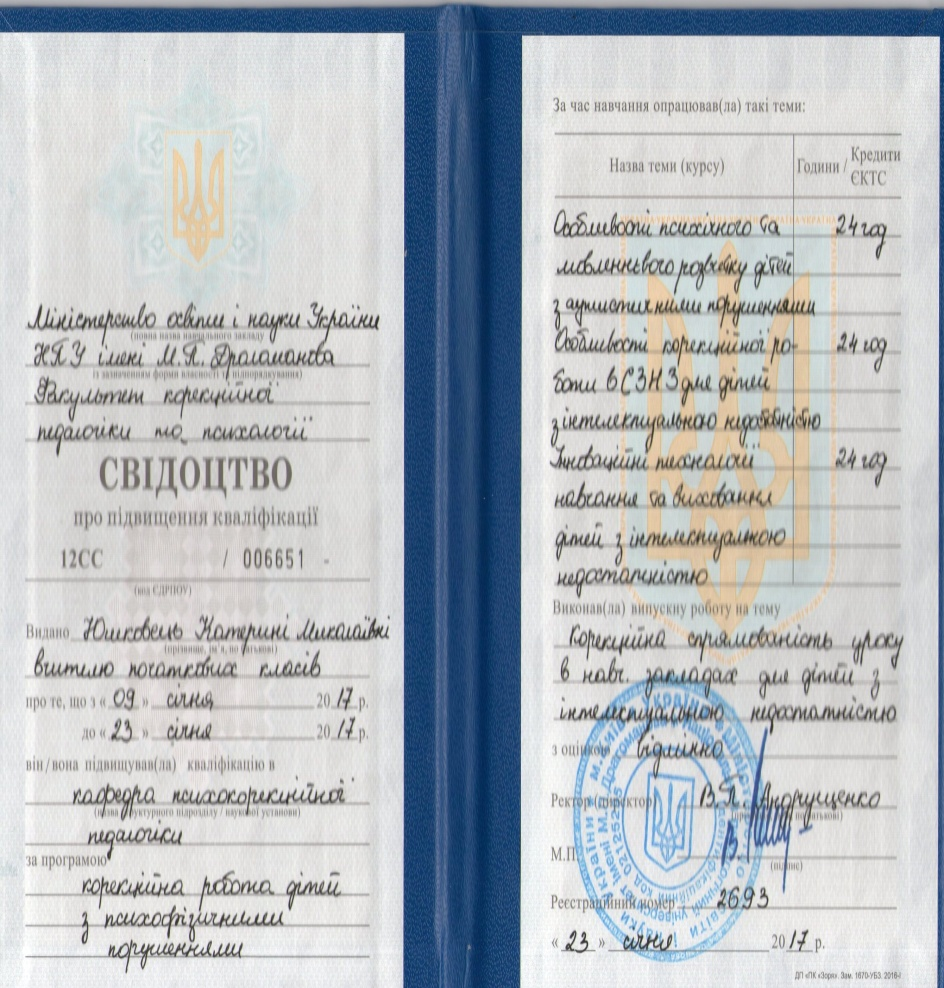 Міністерство освіти і науки України
(повна назва навчального закладу
НПУ імені М.П. Драгоманова
із зазначенням форми власності та підпорядкування)
Факультет корекційної
педагогіки та психології
СВІДОЦТВО
про підвищення кваліфікації
12СС / 006651 -
(код ЄДРПОУ)
Видано Юшковець Катерині Миколаївні
(прізвище, ім'я, по батькові)
вчителю початкових класів
про те, що з « 09 » січня 2017 р.
до « 23 » січня 2017 р.
він/вона підвищував(ла) кваліфікацію в
кафедра психокорекційної
(назва структурного підрозділу / наукової установи)
педагогіки
за програмою
корекційна робота дітей
з психофізичними
порушеннями
За час навчання опрацював(ла) такі теми:
Назва теми (курсу) Години / Кредити ЄКТС
Особливості психічного та 24 год
мовленнєвого розвитку дітей
з аутистичними порушеннями
Особливості корекційної ро- 24 год
боти в СЗНЗ для дітей
з інтелектуальною недостатністю
Інноваційні технології 24 год
навчання та виховання
дітей з інтелектуальною
недостатністю
Виконав(ла) випускну роботу на тему
Корекційна спрямованість уроку
в навч. закладах для дітей з
інтелектуальною недостатністю
з оцінкою відмінно
Ректор (директор) В.П. Андрущенко
М.П.
(підпис)
Реєстраційний номер 2693
« 23 » січня 2017 р.
ДП «ПК «Зоря». Зам. 1670-УБЗ. 2016-